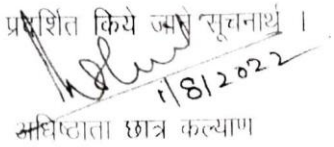 प्रदर्शित किये जाने सूचनार्थ ।
1/8/2022
अधिष्ठाता छात्र कल्याण